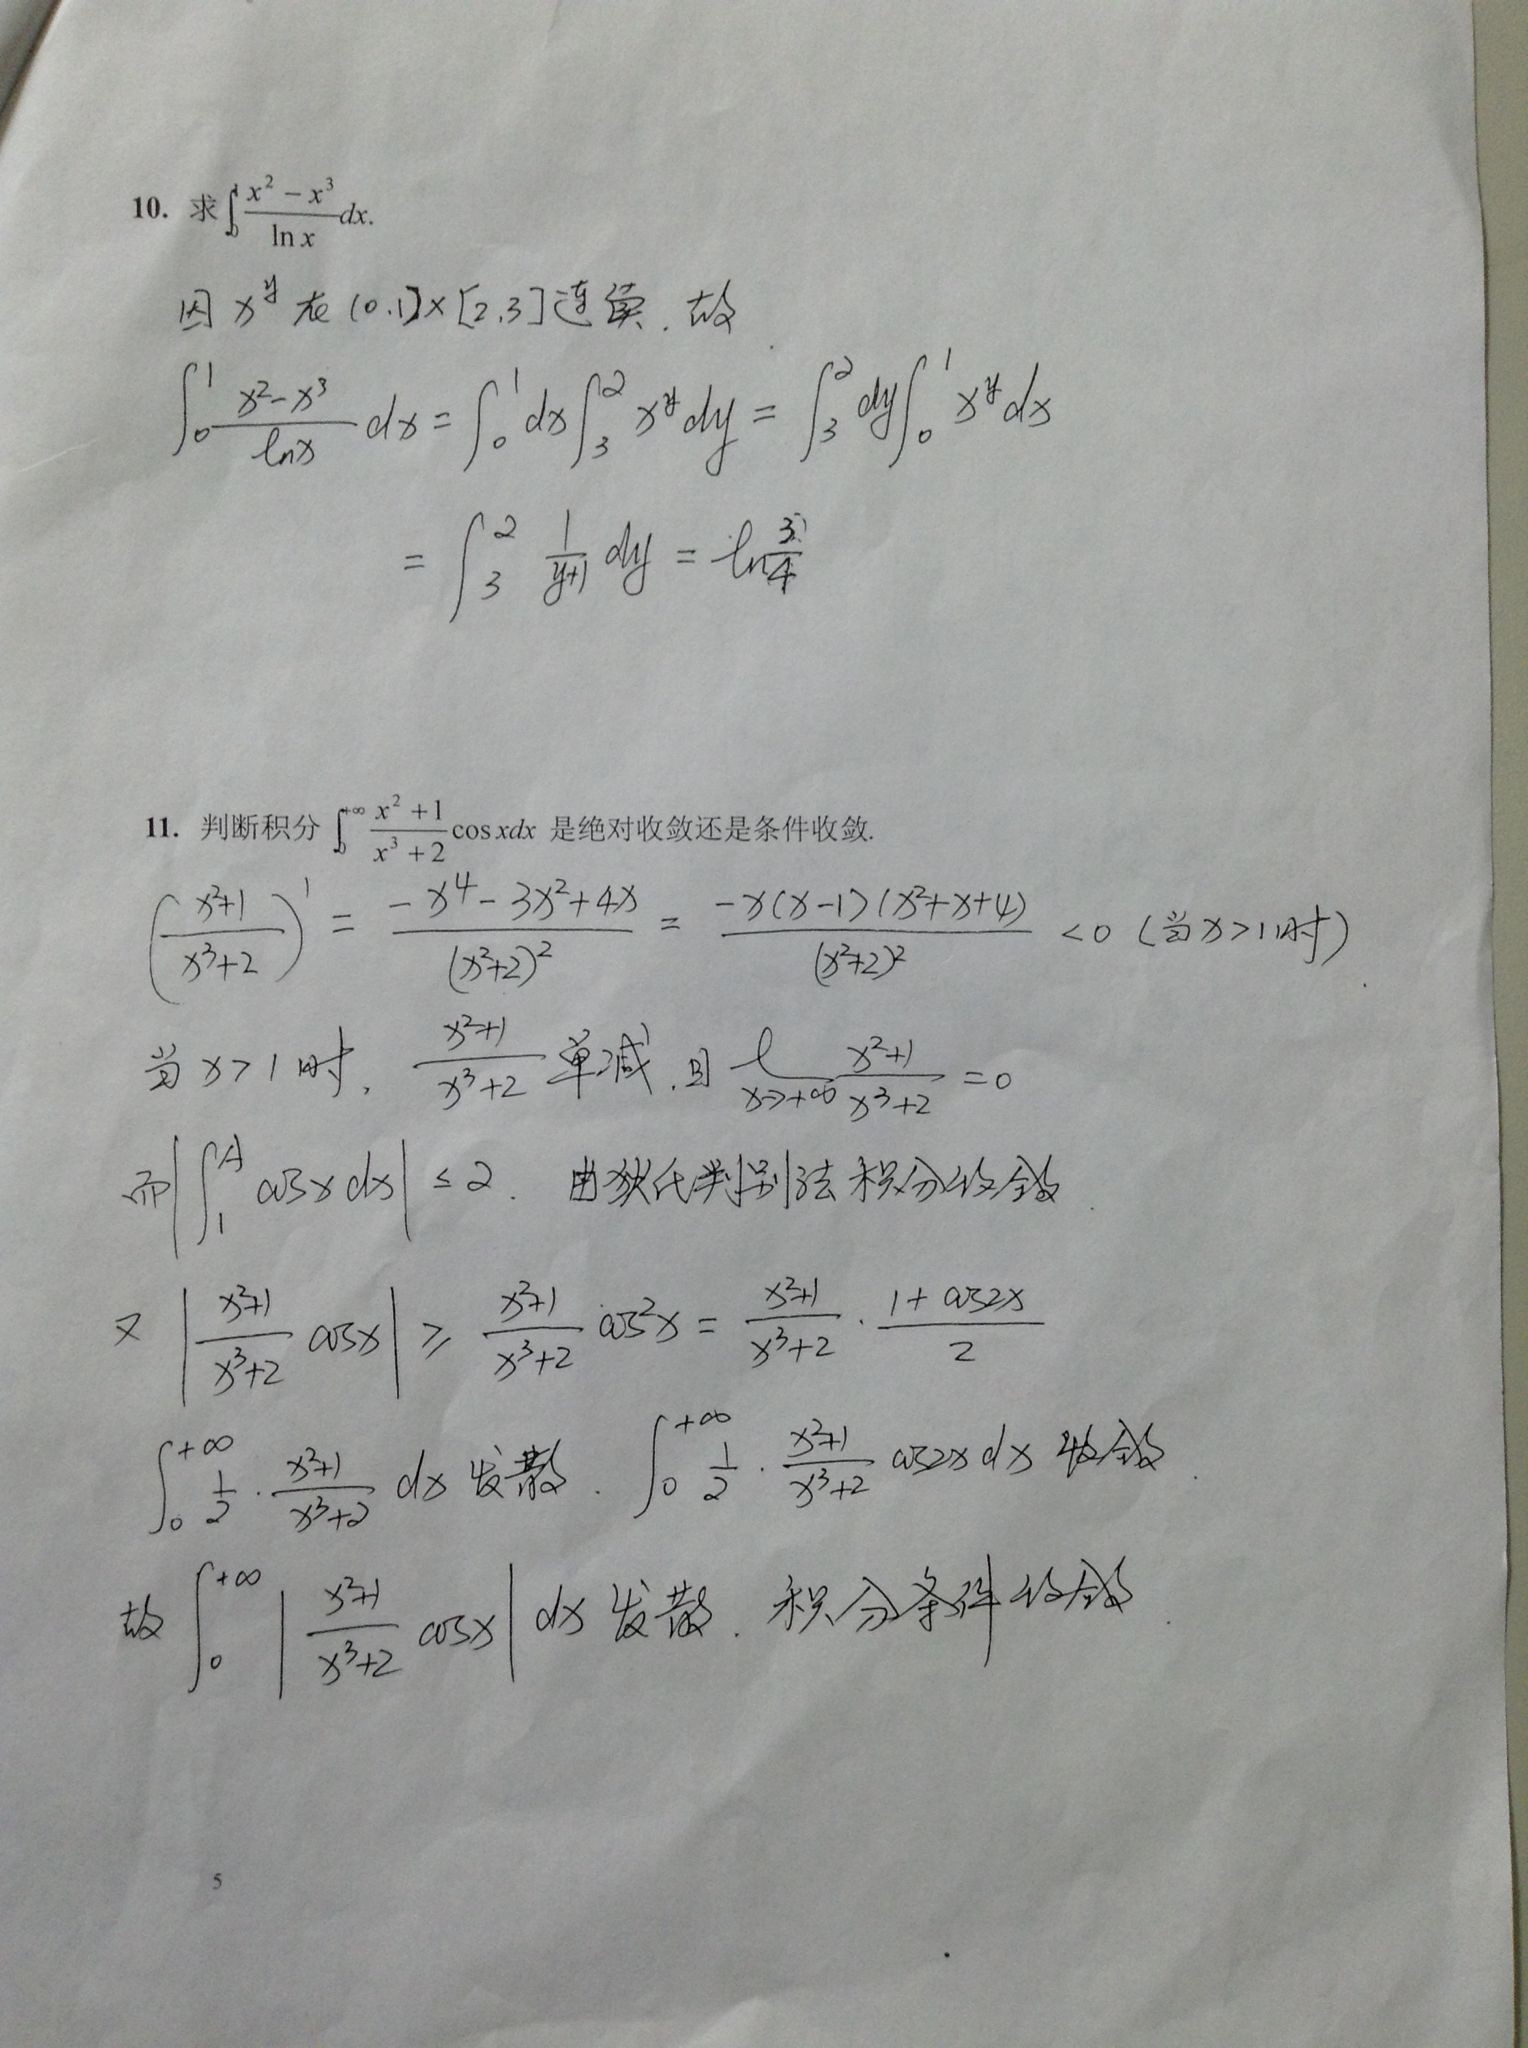 10. 求∫₀¹ (x² − x³)/(ln x) dx.
因 x^y 在 (0,1]×[2,3] 连续. 故
∫₀¹ (x²−x³)/(lnx) dx = ∫₀¹ dx ∫₃² x^y dy = ∫₃² dy ∫₀¹ x^y dx
= ∫₃² 1/(y+1) dy = ln 3/4
11. 判断积分 ∫₀^{+∞} (x² + 1)/(x³ + 2) cos xdx 是绝对收敛还是条件收敛.
((x²+1)/(x³+2))' = (−x⁴−3x²+4x)/(x²+2)² = (−x(x−1)(x²+x+4))/(x²+2)² <0 (当x>1时)
当x>1时, (x²+1)/(x³+2) 单减, 且 l_{x→+∞} (x²+1)/(x³+2) =0
而 |∫₁^A cosx dx| ≤ 2. 由狄氏判别法积分收敛.
又 |(x²+1)/(x³+2) cosx| ≥ (x²+1)/(x³+2) cos²x = (x²+1)/(x³+2) · (1+cos2x)/2
∫₀^{+∞} 1/2 · (x²+1)/(x³+2) dx 发散. ∫₀^{+∞} 1/2 · (x²+1)/(x³+2) cos2x dx 收敛.
故 ∫₀^{+∞} |(x²+1)/(x³+2) cosx| dx 发散. 积分条件收敛.
5